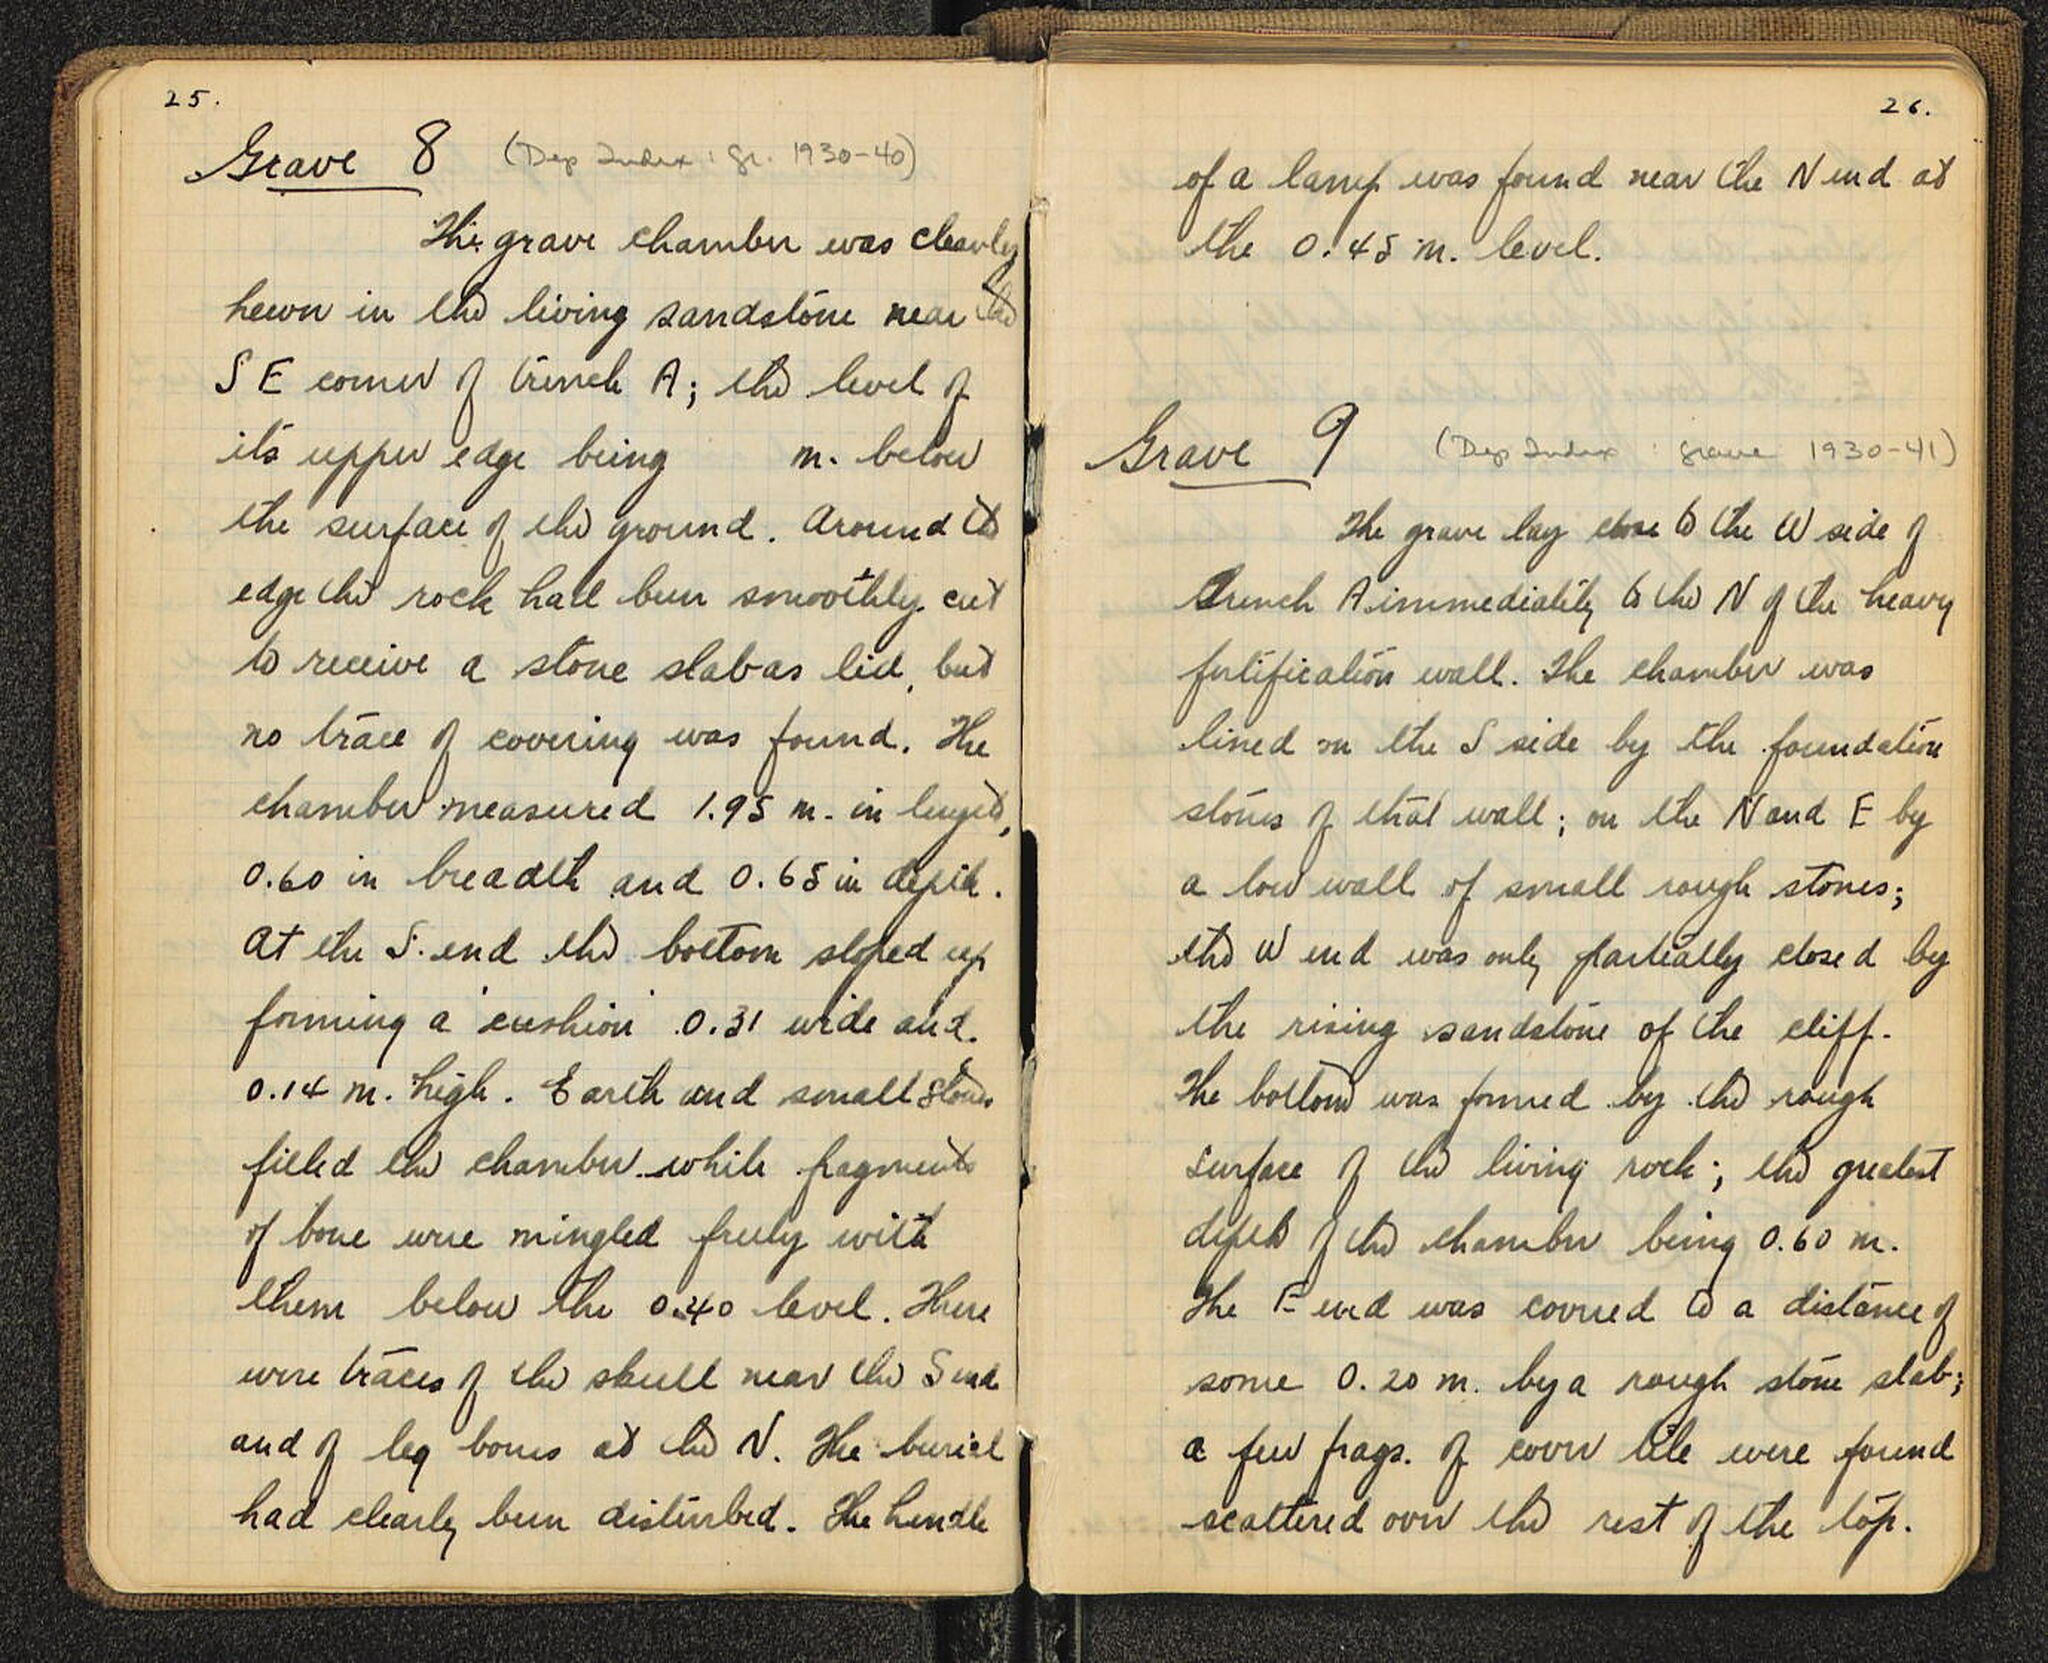 25.
Grave 8 (Dep Index: Gr. 1930-40)
The grave chamber was cleanly
hewn in the living sandstone near the
SE corner of trench A; the level of
its upper edge being m. below
the surface of the ground. Around its
edge the rock had been smoothly cut
to receive a stone slab as lid, but
no trace of covering was found. The
chamber measured 1.95 m. in length,
0.60 in breadth and 0.65 in depth.
At the S. end the bottom sloped up
forming a 'cushion' 0.31 wide and
0.14 m. high. Earth and small stones
filled the chamber while fragments
of bone were mingled freely with
them below the 0.40 level. There
were traces of the skull near the S end
and of leg bones at the N. The burial
had clearly been disturbed. The handle
26.
of a lamp was found near the N end at
the 0.45 m. level.
Grave 9 (Dep Index: grave 1930-41)
The grave lay close to the W side of
trench A immediately to the N of the heavy
fortification wall. The chamber was
lined on the S side by the foundation
stones of that wall; on the N and E by
a low wall of small rough stones;
the W end was only partially closed by
the rising sandstone of the cliff.
The bottom was formed by the rough
surface of the living rock; the greatest
depth of the chamber being 0.60 m.
The E end was covered to a distance of
some 0.20 m. by a rough stone slab;
a few frags. of cover tile were found
scattered over the rest of the top.